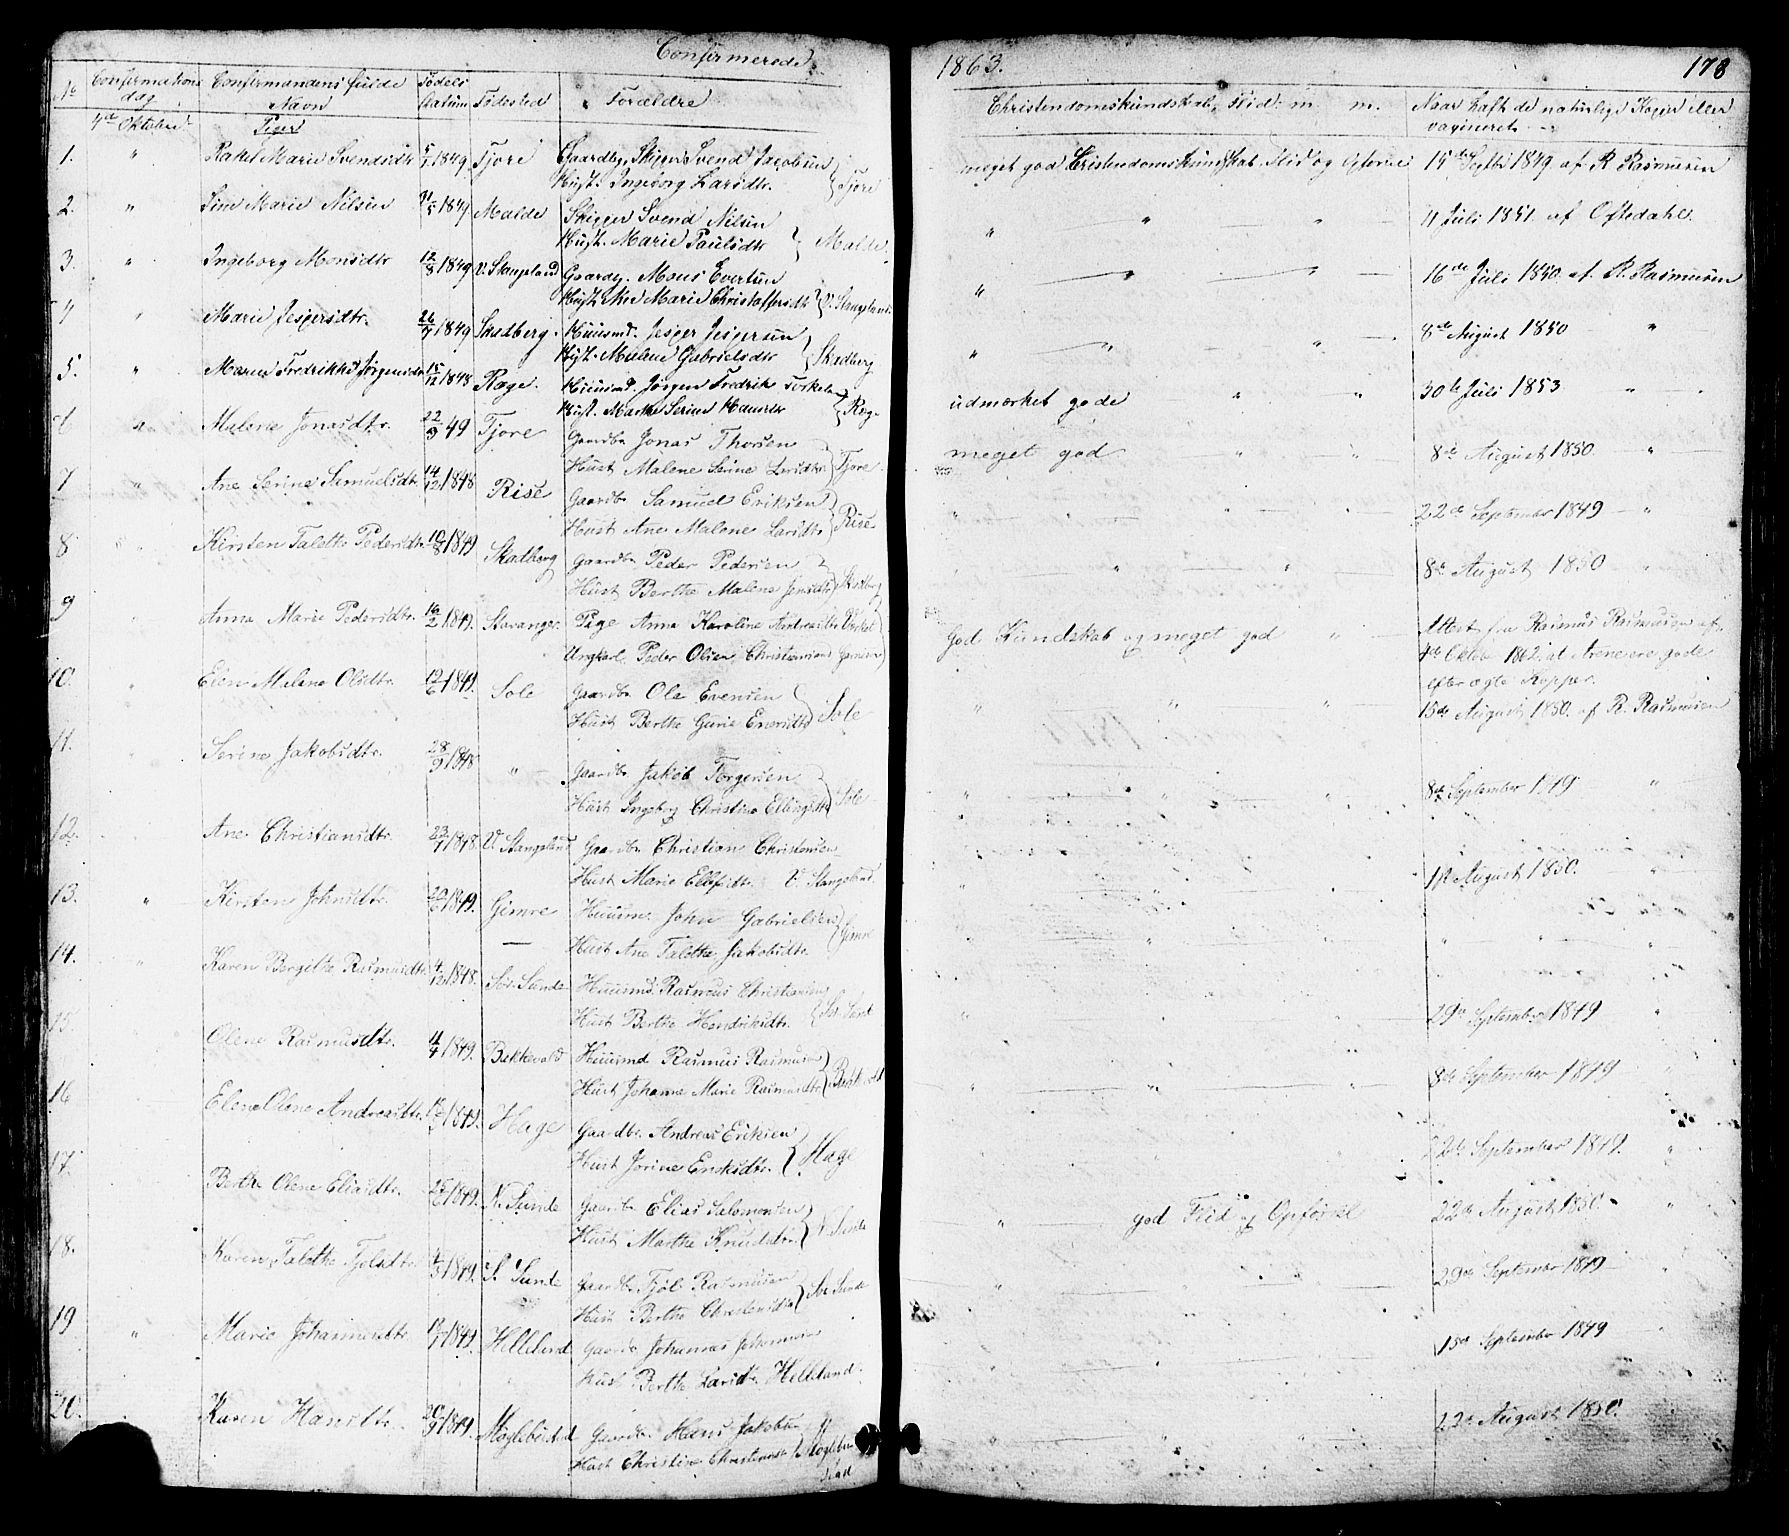 Confirmerede
1863.
178
No
Confirmations dag
Confirmandens fulde Navn
Fødsels datum
Fødested
Forældre
Christendomskundskab, Flid m. m.
Naar haft de naturlige Kopper eller vaccineret
4de Oktober
Piger
1. " Rakel Marie Svendsdtr 5/7 1849 Tjore Gaardbr, Skipper Svend Jacobsen
Hust. Ingeborg Larsdtr. Tjore
meget god Cristendomskundskab Flid og Opførsel 15de Septbr 1849 af R Rasmusen
2. " Sine Marie Nilsen /5 1849 Malde Skipper Svend Nilsen
Hust. Marie Paulsdtr Malde
" " " 11 Juli 1851 af Oftedahl.
3. " Ingeborg Monsdtr 12/8 1849 V. Stangeland Gaardbr. Mons Evertsen
Hust. Marie Christoffersdtr V. Stangeland
" " " 16de Juli 1850 af R. Rasmusen
4 " Marie Jespersdtr. 26/7 1849 Skadberg Huusmd. Jesper Jespersen
Hust. Malene Gabrielsdtr Skadberg
" " " 8de August 1850 "
5. " Maren Fredrikke Jørgensdtr 15/12 1848 Røge. Huusmd. Jørgen Fredrik Torkelsen
Hust. Marthe Serine Hansdtr Røge
udmærket gode " " 30te Juli 1853 " "
6 " Malene Jonasdtr. 22/3 49 Tjore Gaardbr Jonas Thorsen
Hust Malene Serine Larsdtr. Tjore
meget god " " 8de August 1850 "
7 " Ane Serine Samuelsdtr. 14/12 1848 Risе Gaardbr Samuel Eriksen
Hust Ane Malene Larsdtr Rise
" " " 22de September 1849 "
8 " Kirsten Talette Pedersdtr. 10/8 1849 Skadberg Gaardbr Peder Pedersen
Hust Berthe Malene Jensdtr Skadberg
" " " 8de August 1850 "
9 Anna Marie Pedersdtr. 16/2 1849. Stavanger Pige Anna Karoline Andreasdtr
Ungkarl Peder Olsen, Christiansand
God Kundskab og meget god " Attest fra Rasmus Rasmusen af
4de Oktob 1862, at Arrene ere gode
efter ægte Kopper.
10. " Elen Malene Olsdtr. 12/6 1849. Sole Gaardbr Ole Evensen
Hust Berthe Gurie Enersdtr Sole
" " " 15de August 1850. af R. Rasmusen
11. Serine Jakobsdtr. 28/9 1848 " Gaardbr Jakob Torgersen
Hust Ingeborg Christine Ellingsdtr Sole
" " " 8de September 1849 "
12. Ane Christiansdtr. 23/ 1848. V Stangeland Gaardbr Christian Christensen
Hust Marie V. Stangeland.
" " " August 1850.
13. " Kirsten Johnsdtr. 1849. Gimre Huusm. John Gabrielsen
Hust Ane Talethe Jakobsdtr. Gimre
" " " "
14. " Karen Bergitte Rasmusdtr 4/12 1848. Sør. Sunde Huusmd. Rasmus Christiansen
Hust Berthe Hendriksdtr.
" " 29de September 1849 "
15 Olene Rasmusdtr. 11/4 1849. Bekkevold Huusmd Rasmus Rasmusen
Hust Johanne Marie Rasmusdtr
" " 8de September 1849
16 Elen Olene Andreasdtr. 1849. Hage Gaardbr. Andreas Eriksen
Hust Jorine Hage
22de September 1849. "
17. Berthe Olene Eliasdtr. 25/6 1849. N. Sunde Gaardbr Elias Salomonsen
Hust Marthe Knudsdtr. N. Sunde
" god Flid og Opførsel 22de August 1850. "
18. Karen Talethe Fjoldtr. 1849. S. Sunde Gaardbr. Fjol Rasmusen
Hust Berthe Christensdtr Sør Sunde
29de September 1849
19 " Marie Johannesdtr 1849. Helleland Gaardbr Johannes
Hust Berthe Larsdtr Helleland
15de September 1849
20. Karen Hansdtr. 20/9 1849. Møglebustad Gaardbr. Hans Jakobsen
Hust Christine Christensdtr
" " 22de August 1850.